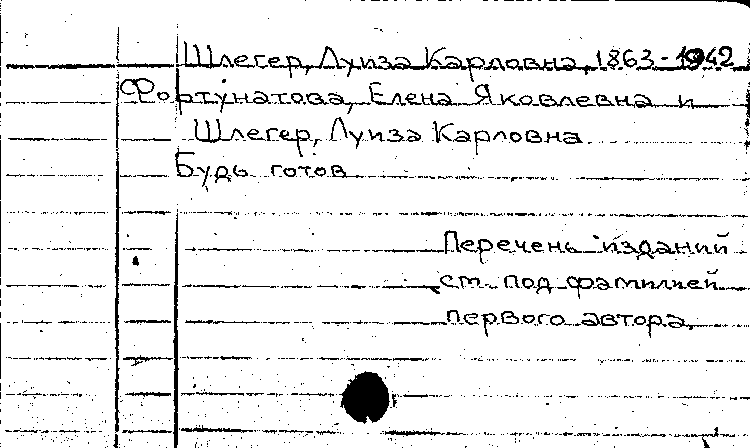 Шлегер, Луиза Карловна, 1863-1942
Фортунатова, Елена Яковлевна и
Шлегер, Луиза Карловна
Будь готов
Перечень изданий
см. под фамилией
первого автора.